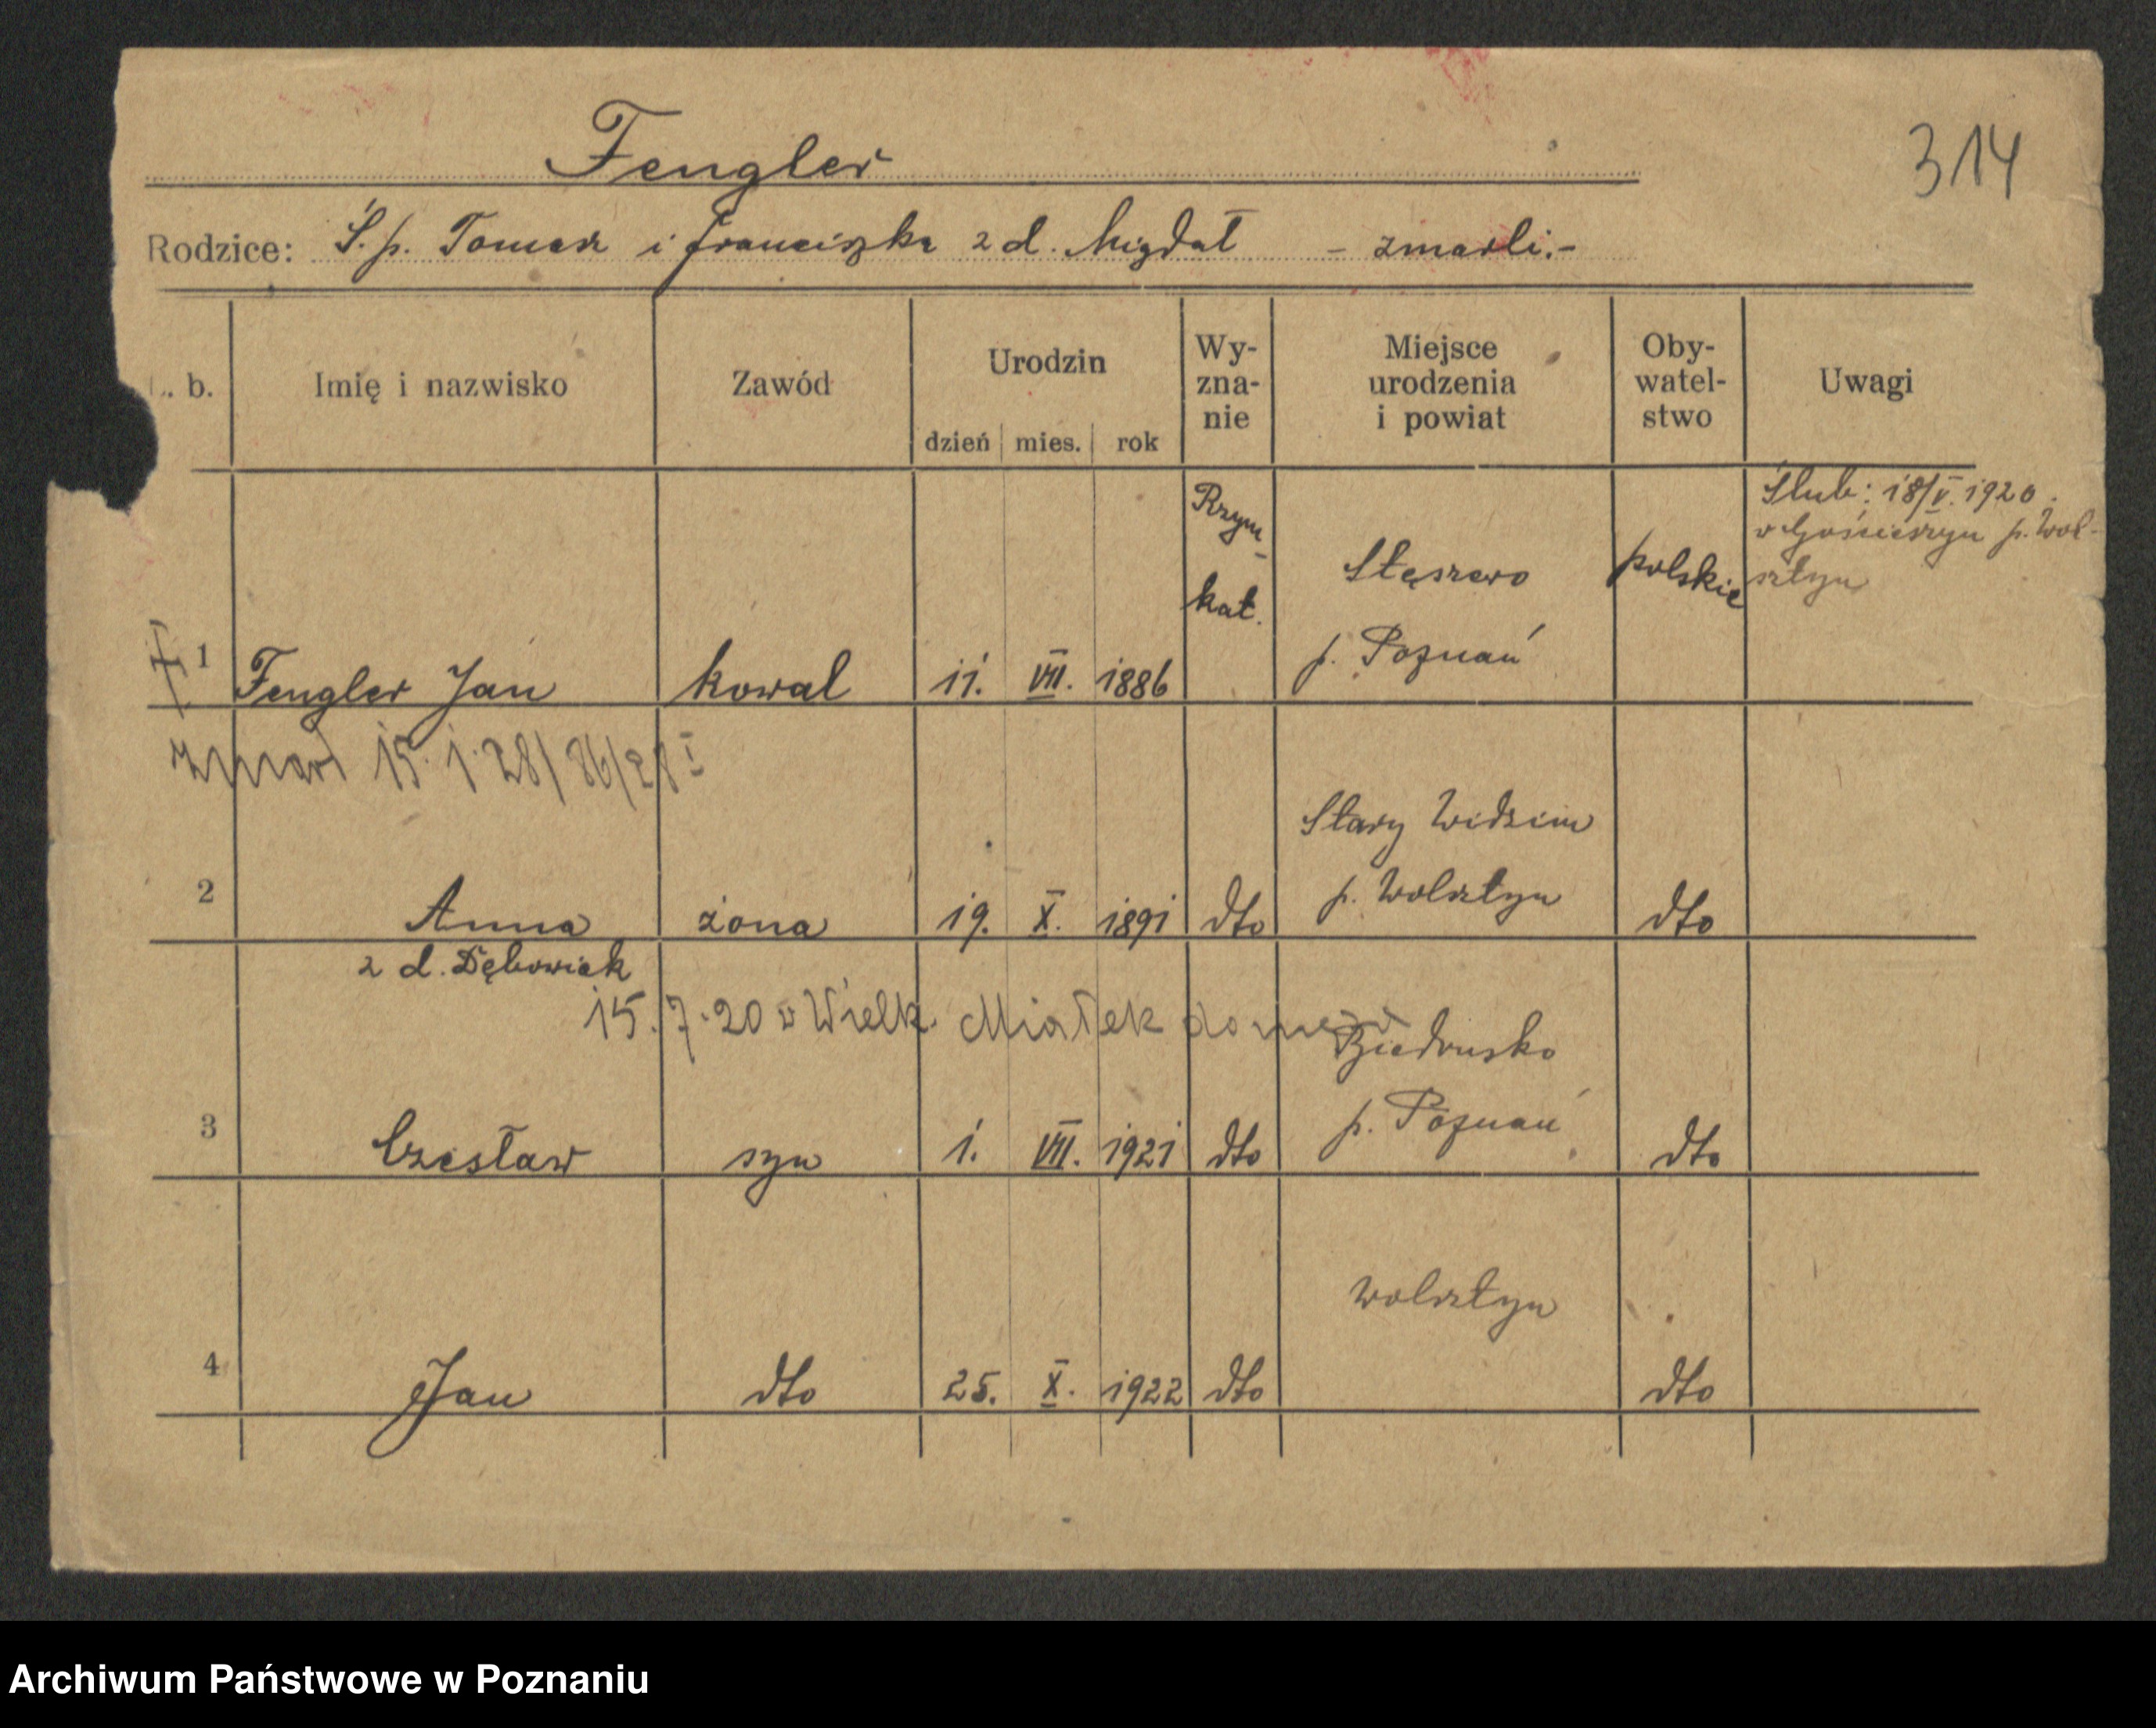 Fengler
314
Rodzice: Ś.p. Tomasz i Franciszka z d. Migdał - zmarli.-
. b.
Imię i nazwisko
Zawód
Urodzin
dzień mies. rok
Wy-
zna-
nie
Miejsce
urodzenia
i powiat
Oby-
watel-
stwo
Uwagi
1 Fengler Jan kowal 11. VIII. 1886
Rzym-
kat.
Stęszewo
p. Poznań
polskie
Ślub: 18/V. 1920.
w Gościeszyn p. Wol-
sztyn
zmarł 15.1.28/86/28 I
2 Anna żona 19. X. 1891 dto
Stary Widzim
p. Wolsztyn
dto
z d. Dębowiak
15.7.20 w Wielk.
3 Czesław syn 1. VIII. 1921 dto
Biedrusko
p. Poznań
dto
4 Jan dto 25. X. 1922 dto
Wolsztyn
dto
Archiwum Państwowe w Poznaniu